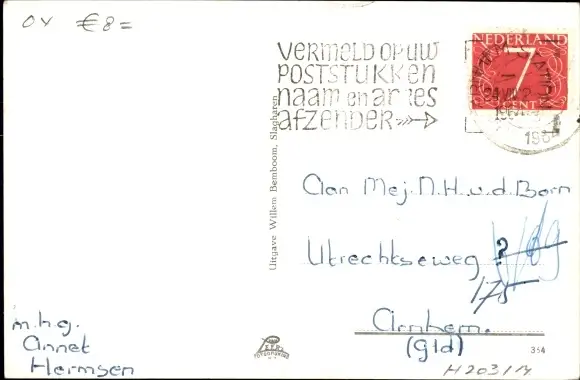 04 €8=
VERMELD OP UW
POSTSTUKKEN
naam en adres
afzender
NEDERLAND
7
CENT
196
Uitgave Willem Bemboom, Slagharen
Aan Mej. N.H. v.d. Born
Utrechtseweg ?
175
Arnhem.
(Gld)
m.h.g.
Annet
Hermsen
354
H203/M